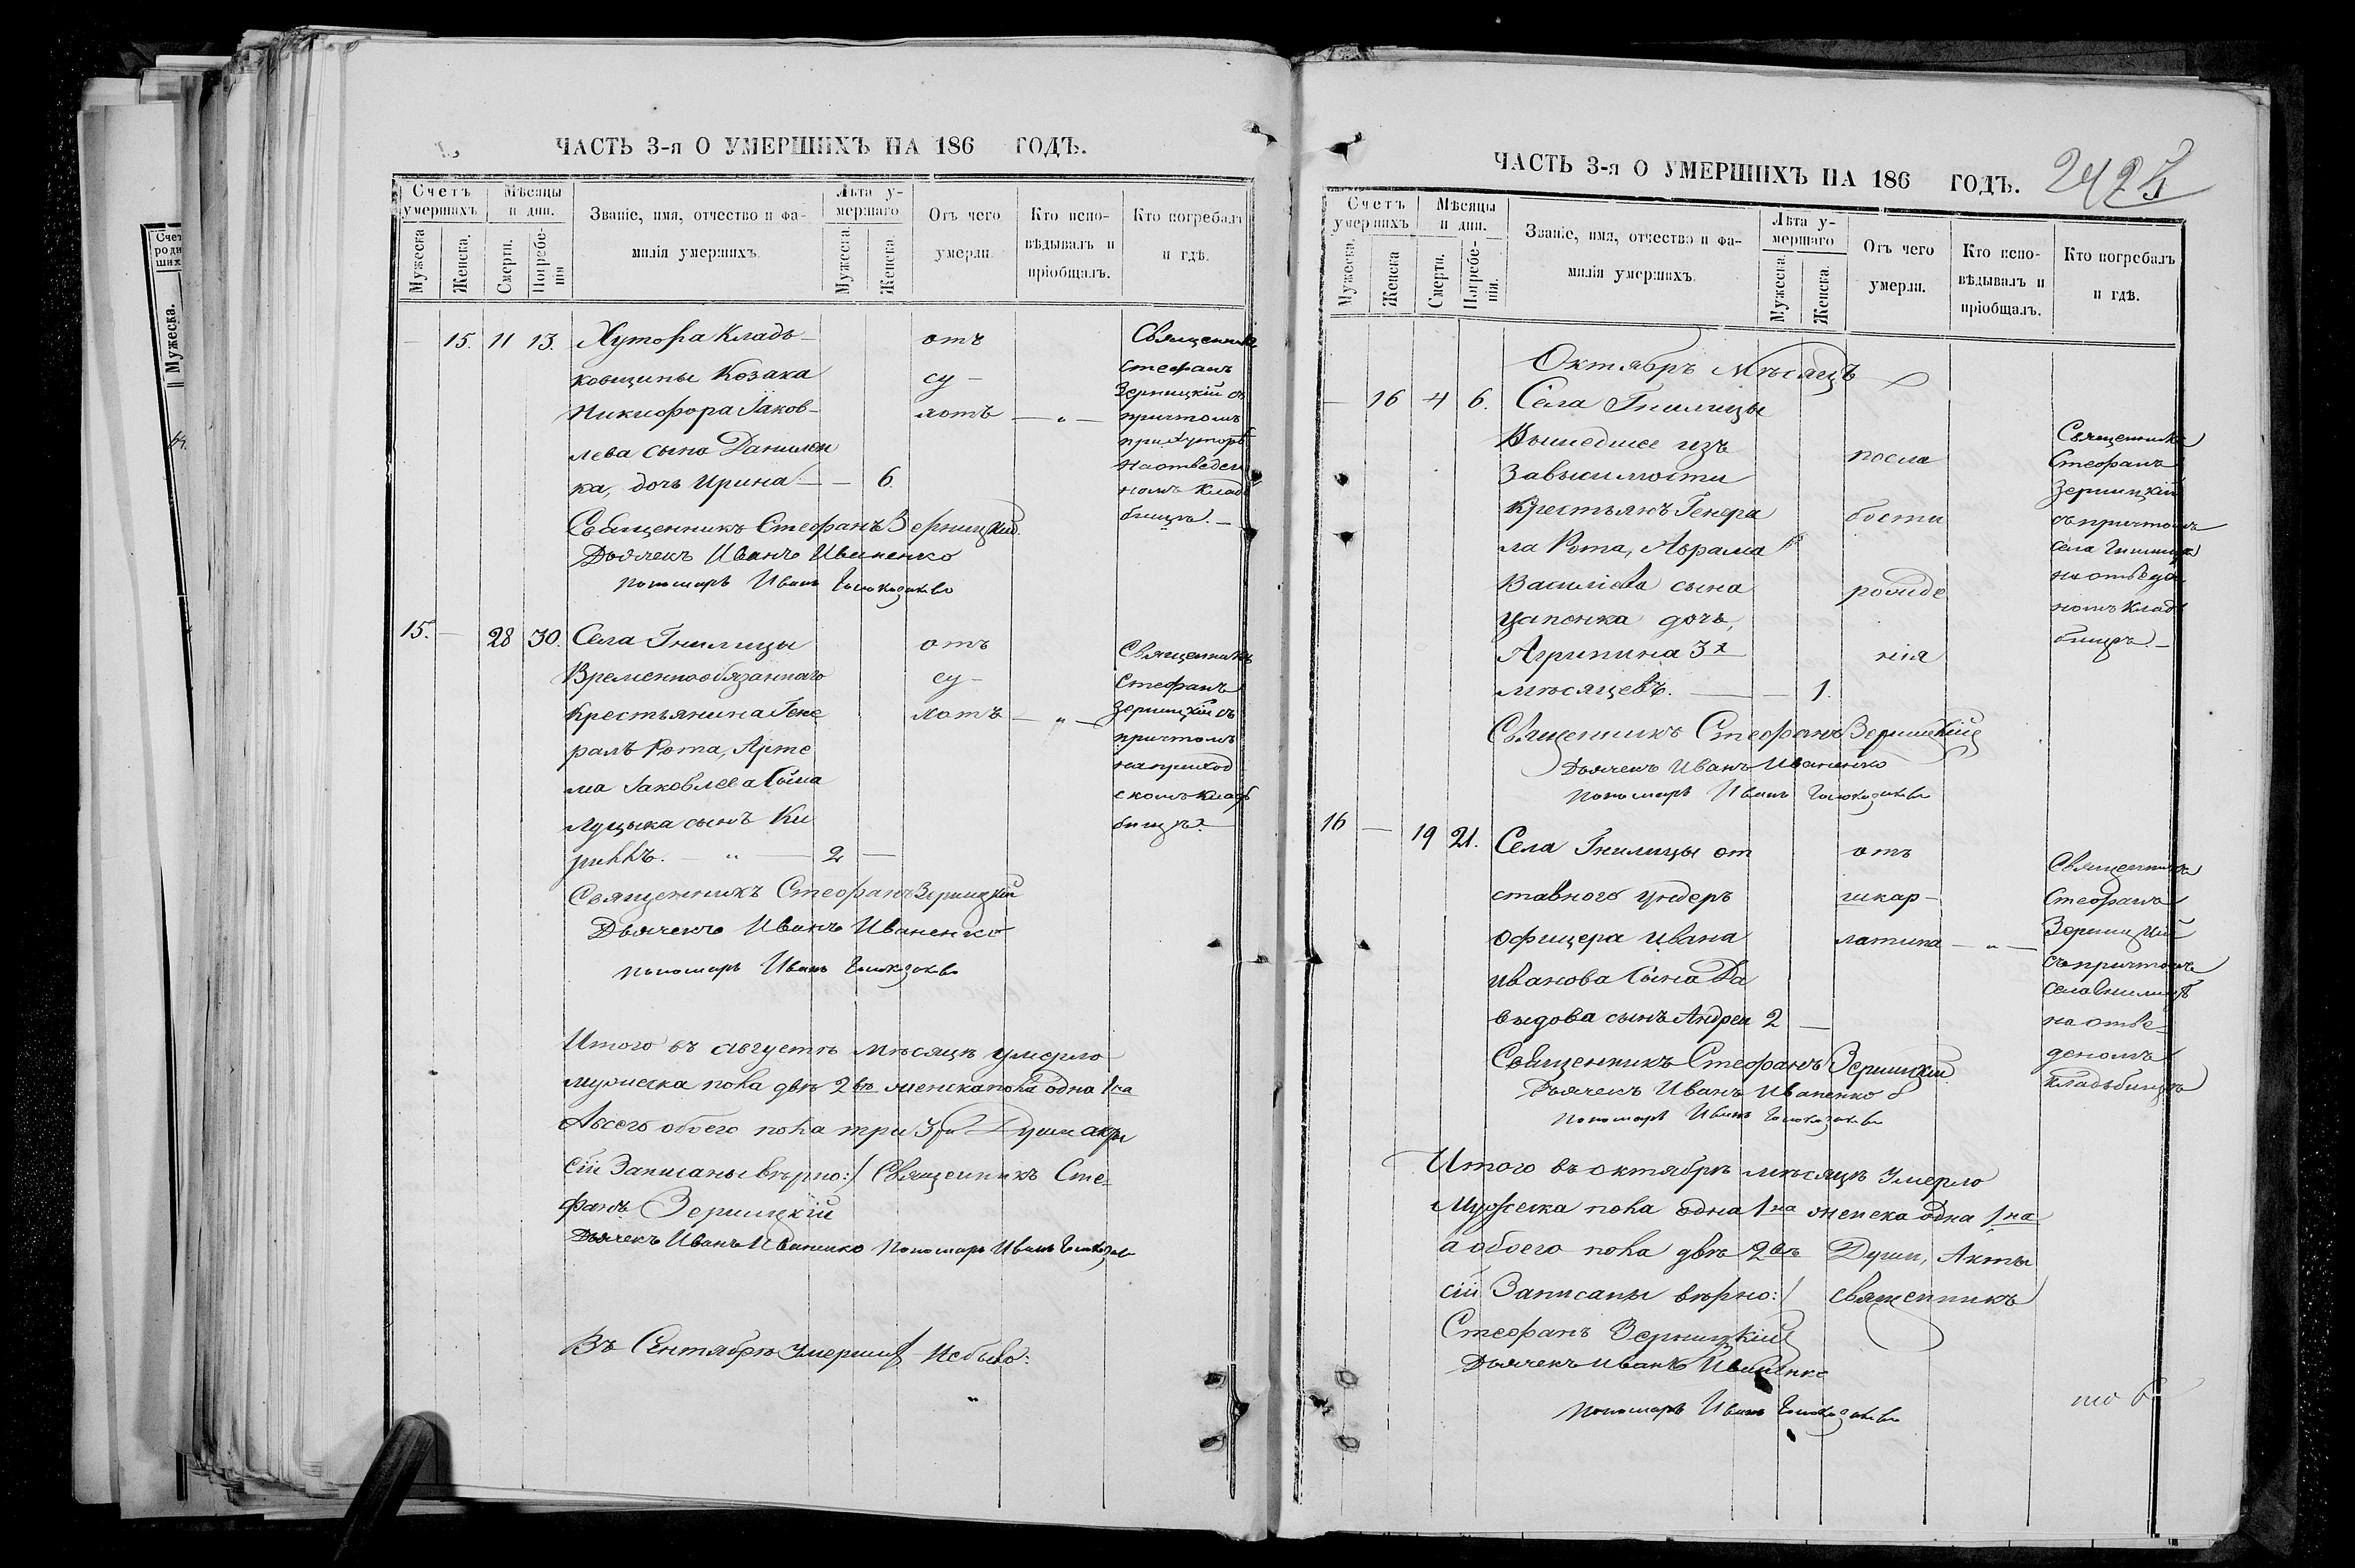 ЧАСТЬ 3-я О УМЕРШИХЪ НА 186 ГОДЪ.
Счетъ умершихъ.
Мужеска
Женска.
Мѣсяцы и дни.
Смерти.
Погребенія
Званіе, имя, отчество и фамилія умершихъ.
Лѣта умершаго
Мужеска.
Женска.
Отъ чего умерли.
Кто исповѣдывалъ и пріобщалъ.
Кто погребалъ и гдѣ.
— 15. 11 13. Хутора Кладь-
ковщины Козака
Никифора Іаков-
лева сына Данилен
ка, дочь Ирина — — 6
отъ
су-
хотъ — „ —
Священникъ
Стефанъ
Зерницкій съ
причтомъ
при Хуторѣ
на отведен
номъ кладь
бищѣ. —
Священникъ Стефанъ Зерницкій.
Дьячекъ Иванъ Иваненко
Пономарь Иванъ
15. — 28 30. Села Гнилицы
Временнообязаннаго
Крестьянина Гене
ралъ Рота, Арте
ма Іаковлева Сына
Луцыка сынъ Ки
рилъ. — „ — 2 —
отъ
су-
хотъ — „ —
Священникъ
Стефанъ
Зерницкій съ
причтомъ
на приход
скомъ кладь
бищѣ. —
Священникъ Стефанъ Зерницкій
Дьячекъ Иванъ Иваненко
Пономарь Иванъ
Итого въ августѣ мѣсяцѣ умерло
мужеска пола двѣ 2вѣ женска пола одна 1на
А всего обоего пола три 3ри Души акты
сіи Записаны вѣрно:/ Священникъ Сте-
фанъ Зерницкій
Дьячекъ Иванъ Иваненко Пономарь Иванъ
Въ Сентябрѣ умершихъ не было:
„
ЧАСТЬ 3-я О УМЕРШИХЪ НА 186 ГОДЪ.
Счетъ умершихъ
Мужеска.
Женска
Мѣсяцы и дни.
Смерти.
Погребенія.
Званіе, имя, отчество и фамилія умершихъ.
Лѣта умершаго
Мужеска.
Женска.
Отъ чего умерли.
Кто исповѣдывалъ и пріобщалъ.
Кто погребалъ и гдѣ.
Октябрь Мѣсяцъ
— 16 4 6. Села Гнилицы
Вышедшее изъ
Зависимости
Крестьянъ Генера
ла Рота, Аврама
Василіева сына
Цапонка дочь,
Агрипина 3х
мѣсяцевъ. — — 1.
посла
бости
рожде
нія
Священникъ
Стефанъ
Зерницкій
съ причтомъ
села Гнилицы
на отведе
номъ кладь
бищѣ. —
Священникъ Стефанъ Зерницкій
Дьячекъ Иванъ Иваненко
Пономарь Иванъ
16 — 19 21. Села Гнилицы от
ставного ундеръ
офицера Ивана
Иванова Сына Да
выдова сынъ Андрей 2 —
отъ
шкар-
латина — „ —
Священникъ
Стефанъ
Зерницкій
съ причтомъ
села Гнилицѣ
на отве-
деномъ
кладьбищѣ
Священникъ Стефанъ Зерницкій.
Дьячекъ Иванъ Иваненко
Пономарь Иванъ
Итого въ октябрѣ мѣсяцѣ Умерло
Мужеска пола одна 1на женска одна 1на
а обоего пола двѣ 2вѣ Души, Акты
сіи Записаны вѣрно:/ Священникъ
Стефанъ Зерницкій
Дьячекъ Иванъ Иваненко
Пономарь Иванъ